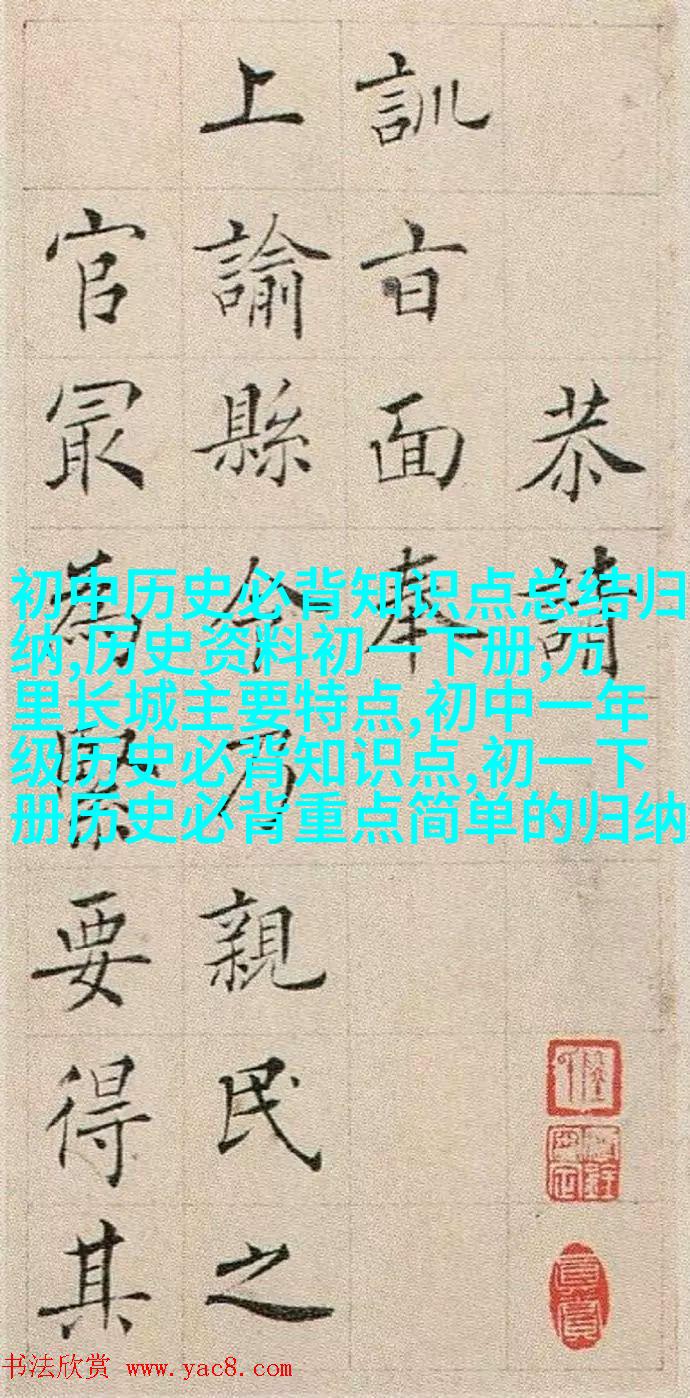 恭請
訓㫖面奉
上諭縣令乃親民之
官㝡為緊要得其
初中历史必背知识点总结归
纳,历史资料初一下册,万
里长城主要特点,初中一年
级历史必背知识点,初一下
册历史必背重点简单的归纳
书法欣赏 www.yac8.com